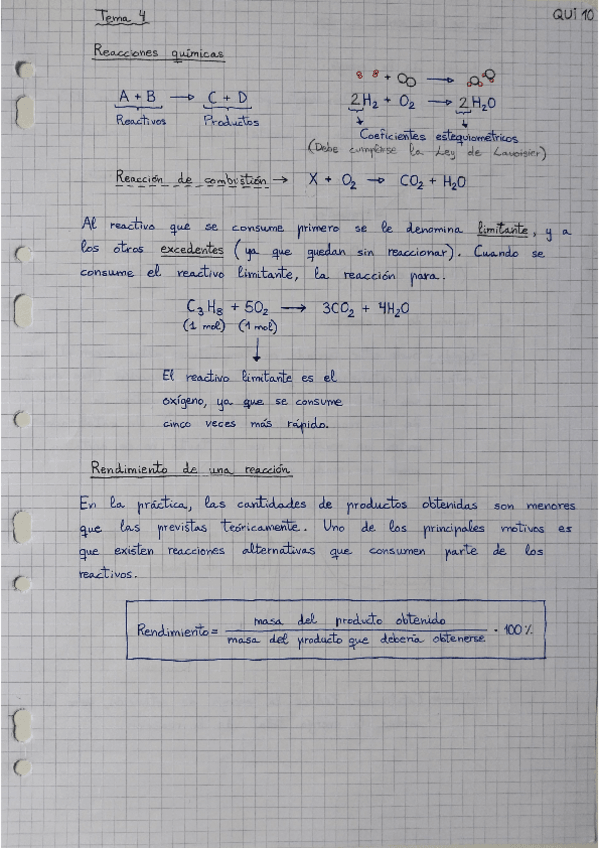 Tema 4
QUI 10
Reacciones químicas
A + B → C + D
Reactivos Productos
2H₂ + O₂ → 2H₂O
Coeficientes estequiométricos
(Debe cumplirse la Ley de Lavoisier)
Reacción de combustión → X + O₂ → CO₂ + H₂O
Al reactivo que se consume primero se le denomina limitante, y a
los otros excedentes (ya que quedan sin reaccionar). Cuando se
consume el reactivo limitante, la reacción para.
C₃H₈ + 5O₂ → 3CO₂ + 4H₂O
(1 mol) (1 mol)
El reactivo limitante es el
oxígeno, ya que se consume
cinco veces más rápido.
Rendimiento de una reacción
En la práctica, las cantidades de productos obtenidas son menores
que las previstas teóricamente. Uno de los principales motivos es
que existen reacciones alternativas que consumen parte de los
reactivos.
masa del producto obtenido
Rendimiento = · 100%
masa del producto que debería obtenerse